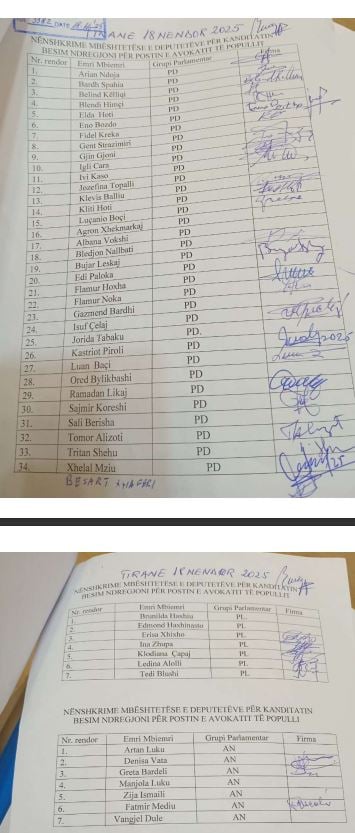 TIRANE 18 NENTOR 2025
NËNSHKRIME MBËSHTETËSE E DEPUTETËVE PËR KANDITATIN
BESIM NDREGJONI PËR POSTIN E AVOKATIT TË POPULLIT
Nr. rendor Emri Mbiemri Grupi Parlamentar Firma
1. Arian Ndoja PD
2. Bardh Spahia PD
3. Belind Këlliçi PD
4. Blendi Himçi PD
5. Elda Hoti PD
6. Eno Bozdo PD
7. Fidel Kreka PD
8. Gent Strazimiri PD
9. Gjin Gjoni PD
10. Igli Cara PD
11. Ivi Kaso PD
12. Jozefina Topalli PD
13. Klevis Balliu PD
14. Kliti Hoti PD
15. Luçiano Boçi PD
16. Agron Xhekmarkaj PD
17. Albana Vokshi PD
18. Bledjon Nallbati PD
19. Bujar Leskaj PD
20. Edi Paloka PD
21. Flamur Hoxha PD
22. Flamur Noka PD
23. Gazmend Bardhi PD
24. Isuf Çelaj PD
25. Jorida Tabaku PD.
26. Kastriot Piroli PD
27. Luan Baçi PD
28. Ored Bylikbashi PD
29. Ramadan Likaj PD
30. Sajmir Koreshi PD
31. Sali Berisha PD
32. Tomor Alizoti PD
33. Tritan Shehu PD
34. Xhelal Mziu PD
BESART XHAFERI
TIRANE 18 NENTOR 2025
NËNSHKRIME MBËSHTETËSE E DEPUTETËVE PËR KANDITATIN
BESIM NDREGJONI PËR POSTIN E AVOKATIT TË POPULLIT
Nr. rendor Emri Mbiemri Grupi Parlamentar Firma
1. Brunilda Haxhiu PL
2. Edmond Haxhinasto PL
3. Erisa Xhixho PL
4. Ina Zhupa PL
5. Klodiana Çapaj PL
6. Ledina Alolli PL
7. Tedi Blushi PL
NËNSHKRIME MBËSHTETËSE E DEPUTETËVE PËR KANDITATIN
BESIM NDREGJONI PËR POSTIN E AVOKATIT TË POPULLIT
Nr. rendor Emri Mbiemri Grupi Parlamentar Firma
1. Artan Luku AN
2. Denisa Vata AN
3. Greta Bardeli AN
4. Manjola Luku AN
5. Zija Ismaili AN
6. Fatmir Mediu AN
7. Vangjel Dule AN